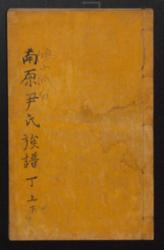 南原尹氏族譜 丁 上下